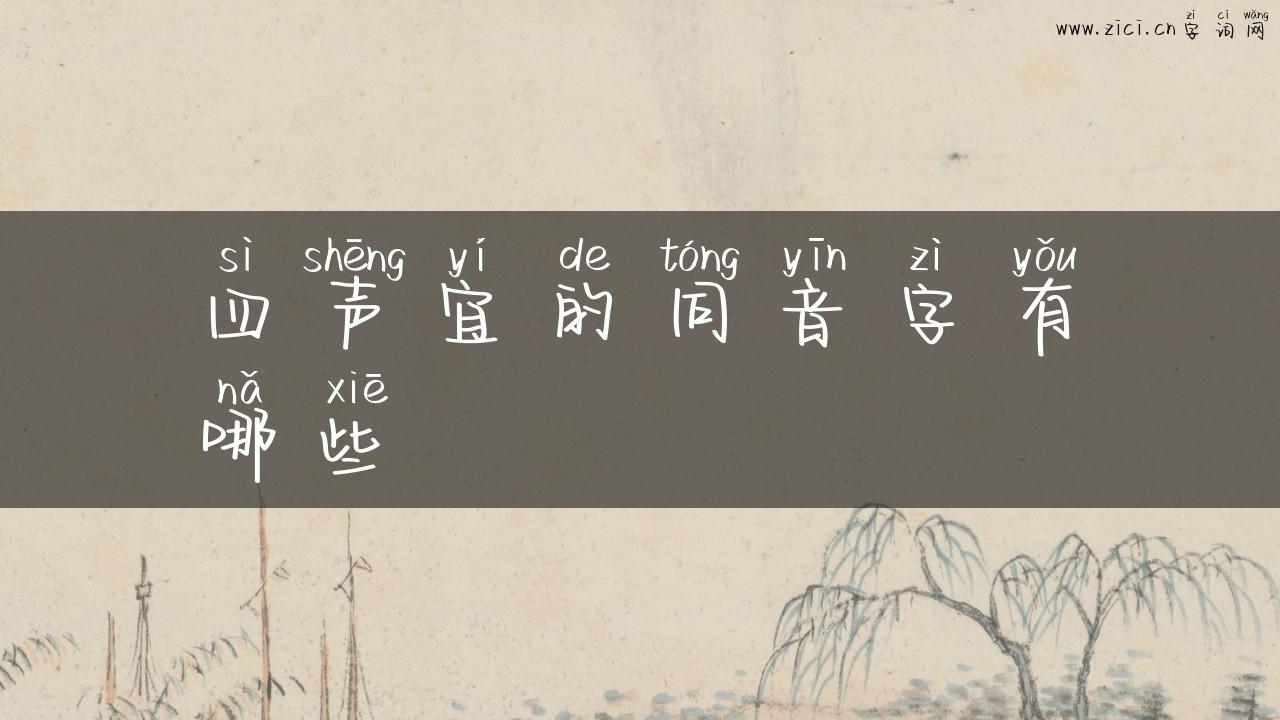 zì cí wǎng
www.zici.cn 字词网
sì shēng yí de tóng yīn zì yǒu
四声宜的同音字有
nǎ xiē
哪些